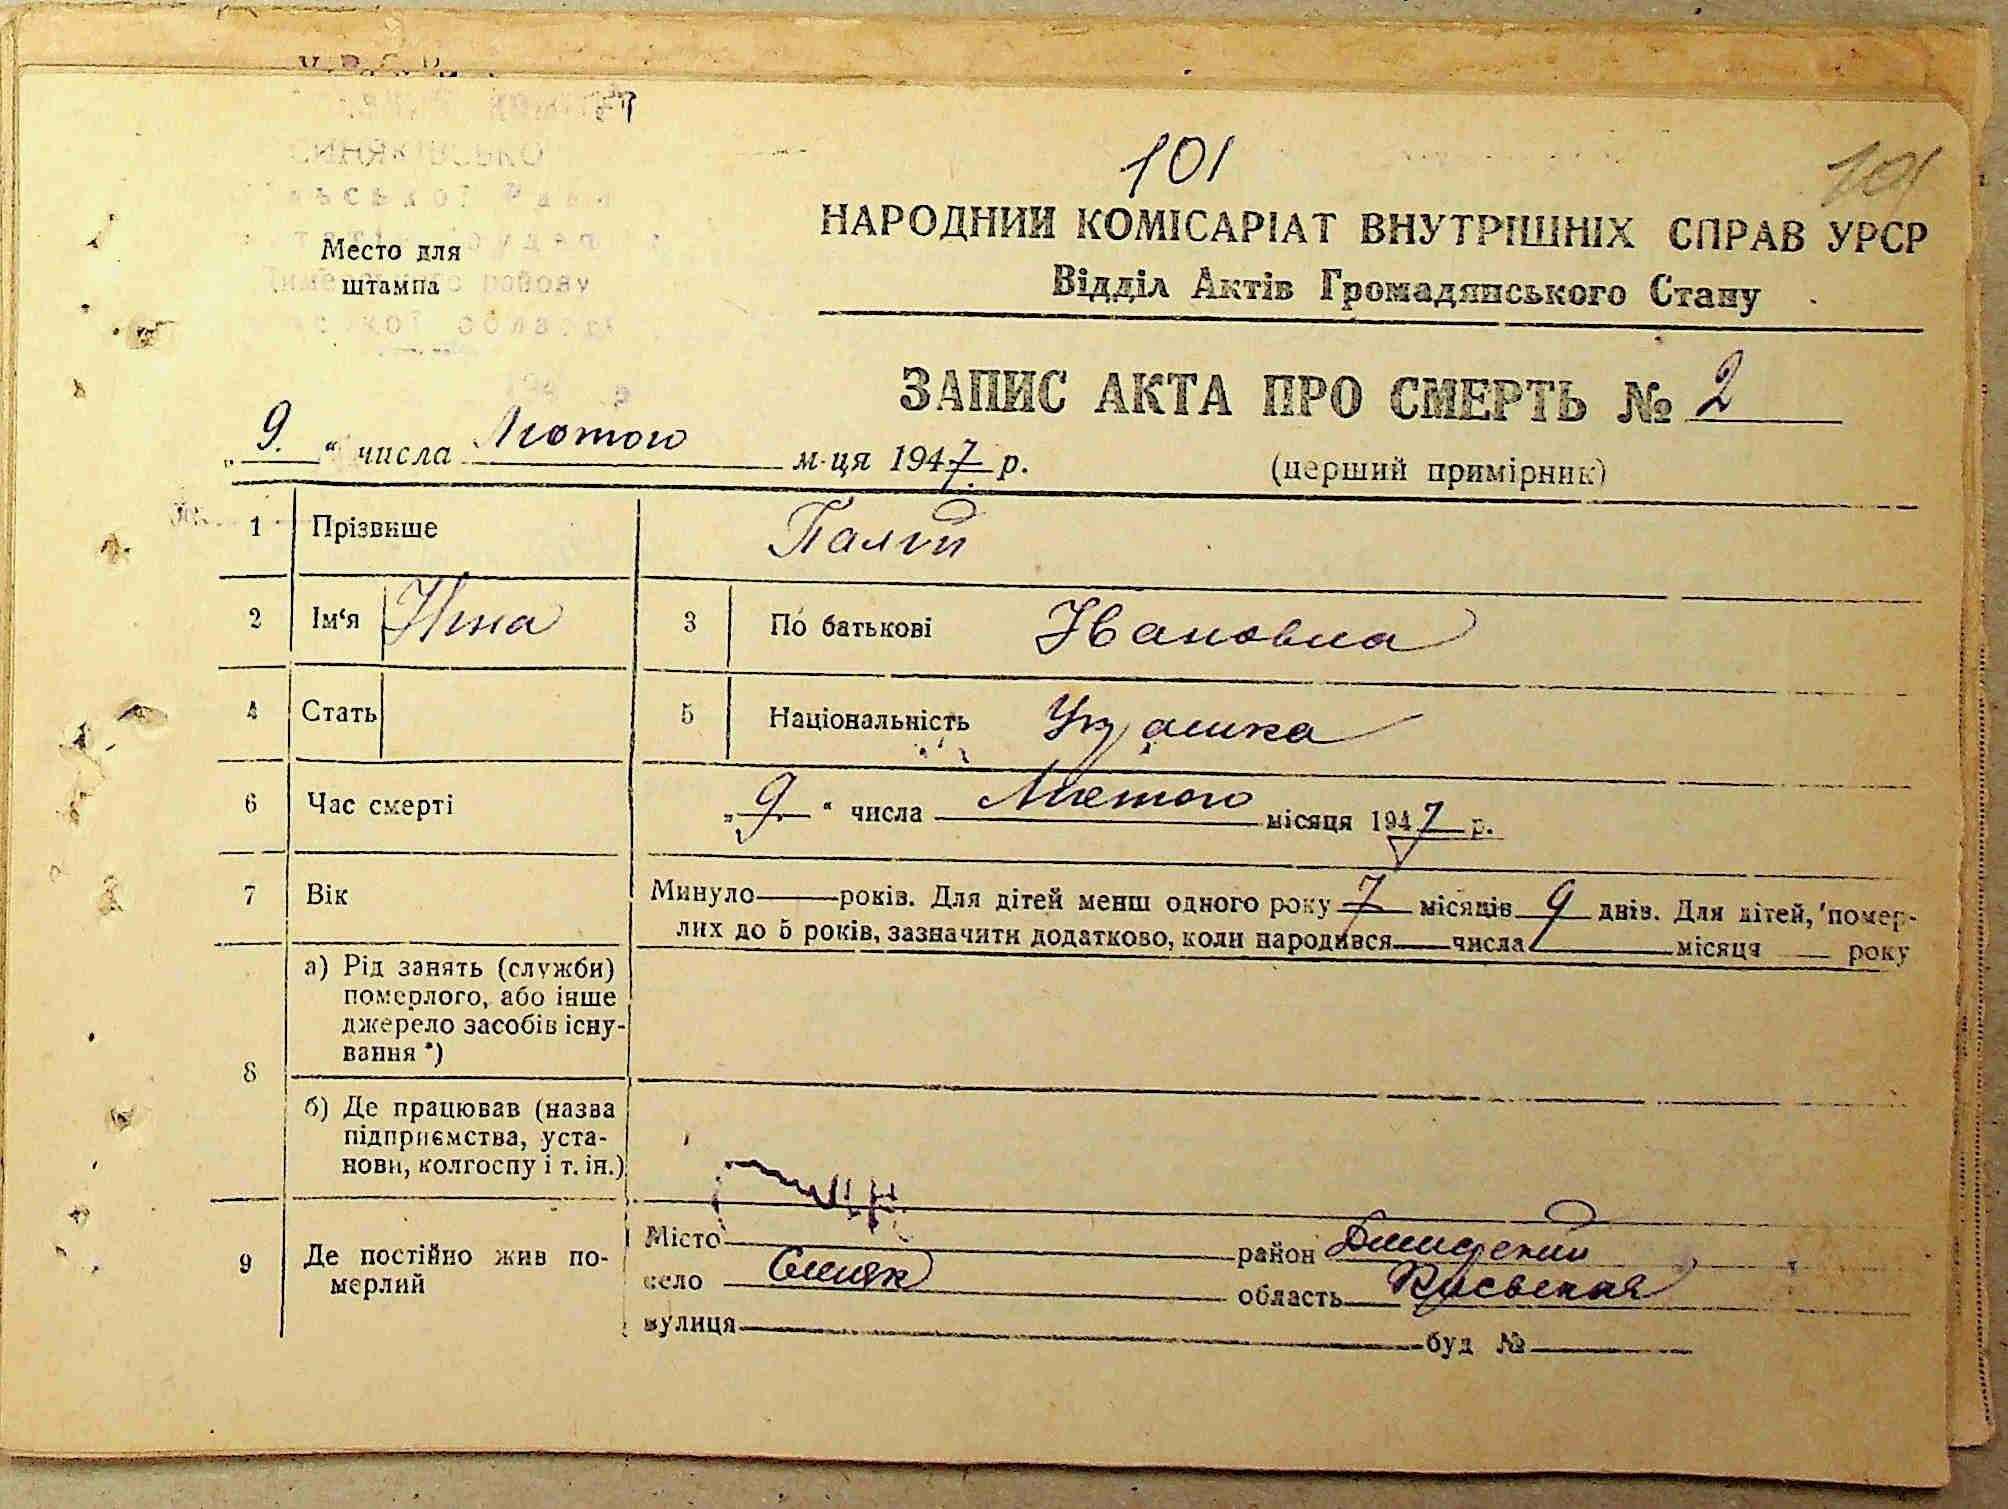 101
101
СИНЯКІВСЬКО
Место для
штампа
району
НАРОДНИЙ КОМІСАРІАТ ВНУТРІШНІХ СПРАВ УРСР
Відділ Актів Громадянського Стану
ЗАПИС АКТА ПРО СМЕРТЬ № 2
„9." числа Лютого м-ця 1947 р.
(перший примірник)
1 Прізвище Палій
2 Ім'я Ніна 3 По батькові Ивановна
4 Стать 5 Національність Укр
6 Час смерті „9." числа Лютого місяця 1947 р.
7 Вік Минуло — років. Для дітей менш одного року 7 місяців 9 днів. Для дітей, помер-
лих до 5 років, зазначити додатково, коли народився — числа — місяця — року
8 а) Рід занять (служби)
померлого, або інше
джерело засобів існу-
вання *)
б) Де працював (назва
підприємства, уста-
нови, колгоспу і т. ін.)
9 Де постійно жив по-
мерлий
Місто район
село Синяк область Киевская
вулиця буд №